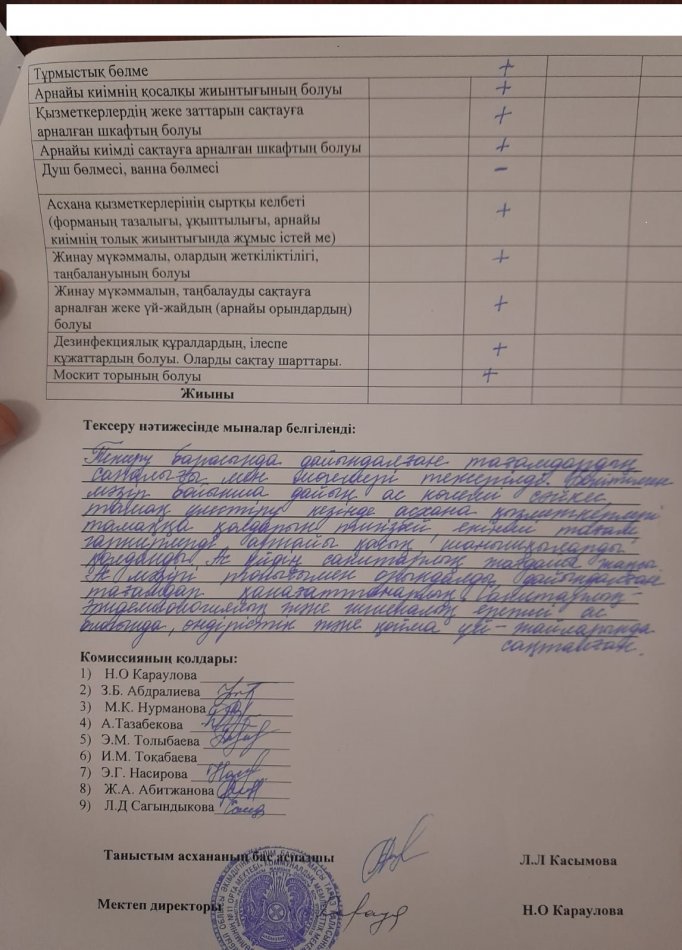 Тұрмыстық бөлме +
Арнайы киімнің қосалқы жиынтығының болуы +
Қызметкерлердің жеке заттарын сақтауға +
арналған шкафтың болуы
Арнайы киімді сақтауға арналған шкафтың болуы +
Душ бөлмесі, ванна бөлмесі –
Асхана қызметкерлерінің сыртқы келбеті
(форманың тазалығы, ұқыптылығы, арнайы +
киімнің толық жиынтығында жұмыс істей ме)
Жинау мүкәммалы, олардың жеткіліктілігі, +
таңбалануының болуы
Жинау мүкәммалын, таңбалауды сақтауға
арналған жеке үй-жайдың (арнайы орындардың) +
болуы
Дезинфекциялық құралдардың, ілеспе +
құжаттардың болуы. Оларды сақтау шарттары.
Москит торының болуы +
Жиыны
Тексеру нәтижесінде мыналар белгіленді:
Тексеру барысында дайындалған тағамдардың
сапалығы мен мөлшері тексерілді. Бекітілген
мәзір бойынша дайын ас көлемі сәйкес,
тамақ үлестіру кезінде асхана қызметкерлері
тамаққа қолдарын тигізбей, екінші тағам
гарнирлерді арнайы қасық, шанышқыларды
қолданды. Ас үйдің санитарлық жағдайы жақсы.
Ас мәзірі толығымен орындалды, дайындалған
тағамдар қанағаттанарлық. Санитарлық-
эпидемиологиялық және гигиеналық ережесі ас
блогында, өндірістік және қойма үй-жайларында
сақталған.
Комиссияның қолдары:
1) Н.О Караулова
2) З.Б. Абдралиева
3) М.К. Нурманова
4) А.Тазабекова
5) Э.М. Толыбаева
6) И.М. Тоқабаева
7) Э.Г. Насирова
8) Ж.А. Абитжанова
9) Л.Д Сагындыкова
Таныстым асхананың бас аспазшы Л.Л Касымова
Мектеп директоры Н.О Караулова